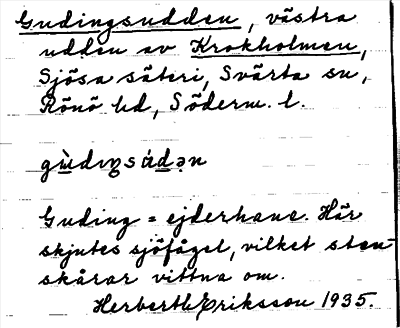 Gudingsudden, västra
udden av Krokholmen,
Sjösa säteri, Svärta sn,
Rönö hd, Söderm. l.
gùdıŋsúdən
Guding = ejderhane. Här
skjutes sjöfågel, vilket sten-
skårar vittna om.
Herbert Eriksson 1935.